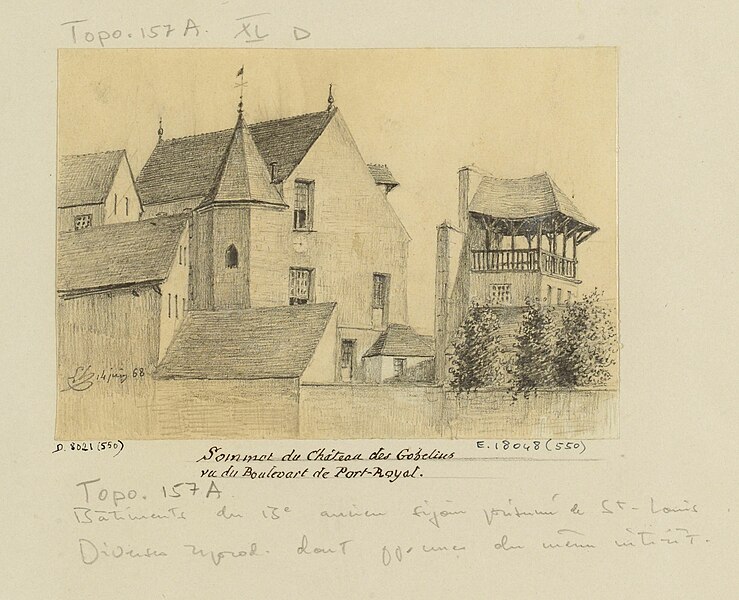 Topo. 157 A. XL D
14 juin 68
D. 8021 (550)
E. 18048 (550)
Sommet du Château des Gobelins
vu du Boulevart de Port-Royal.
Topo. 157 A
Bâtiments du 13e ancien séjour présumé de St-Louis.
Diverses reprod. dont du même